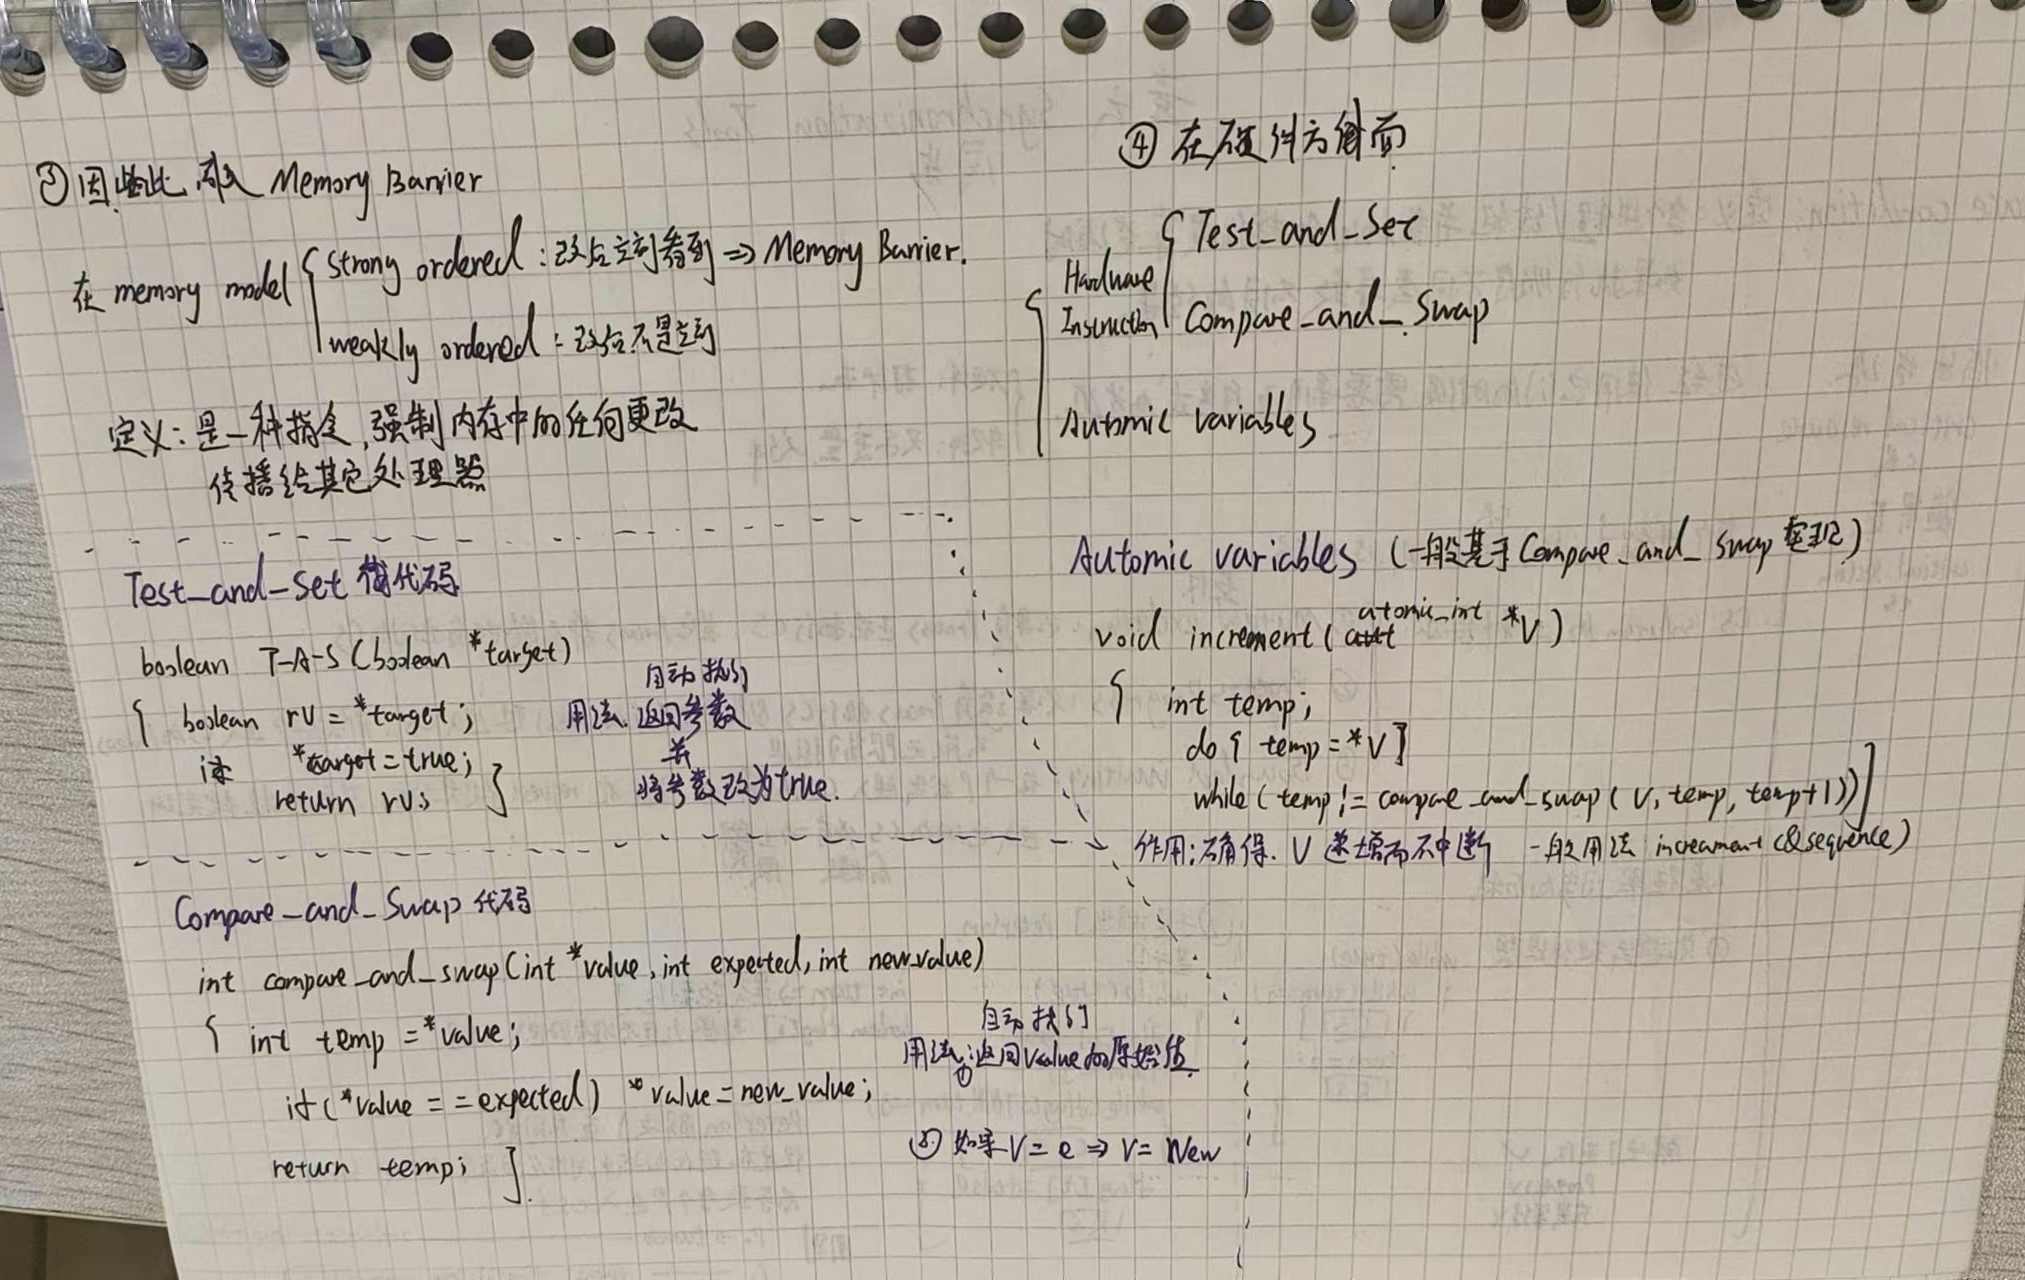 ③因此 Memory Barrier
在 memory model
strong ordered：改后立刻看到 ⇒ Memory Barrier.
weakly ordered：改后不是立刻
定义：是一种指令，强制内存中的任何更改
传播给其它处理器
Test_and_Set 代码
boolean T-A-S (boolean *target)
{ boolean rv = *target;
*target = true;
return rv; }
自动执行
用法. 返回参数
并
将参数改为true.
Compare_and_Swap 代码
int compare_and_swap(int *value, int expected, int new_value)
{ int temp = *value;
if (*value == expected) *value = new_value;
return temp; }.
自动执行
用法：①返回value的原始值.
② 如果 V = e ⇒ V = New
④ 在硬件方面
Hardware
Instruction
Test_and_Set
Compare_and_Swap
Automic variables
Automic variables (一般基于Compare_and_Swap 实现)
void increment (atomic_int *V)
{ int temp;
do { temp = *V }
while (temp != compare_and_swap (V, temp, temp+1)) }
作用：确保. V 递增而不中断 一般用法 increament (&sequence)